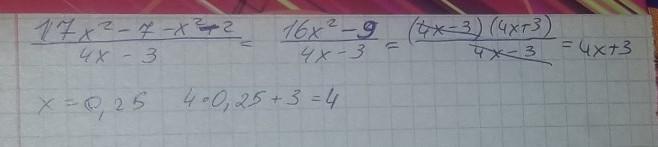 (17x² - 7 - x² - 2)/(4x - 3) = (16x² - 9)/(4x - 3) = ((4x - 3)(4x + 3))/(4x - 3) = 4x + 3
x = 0,25 4·0,25 + 3 = 4